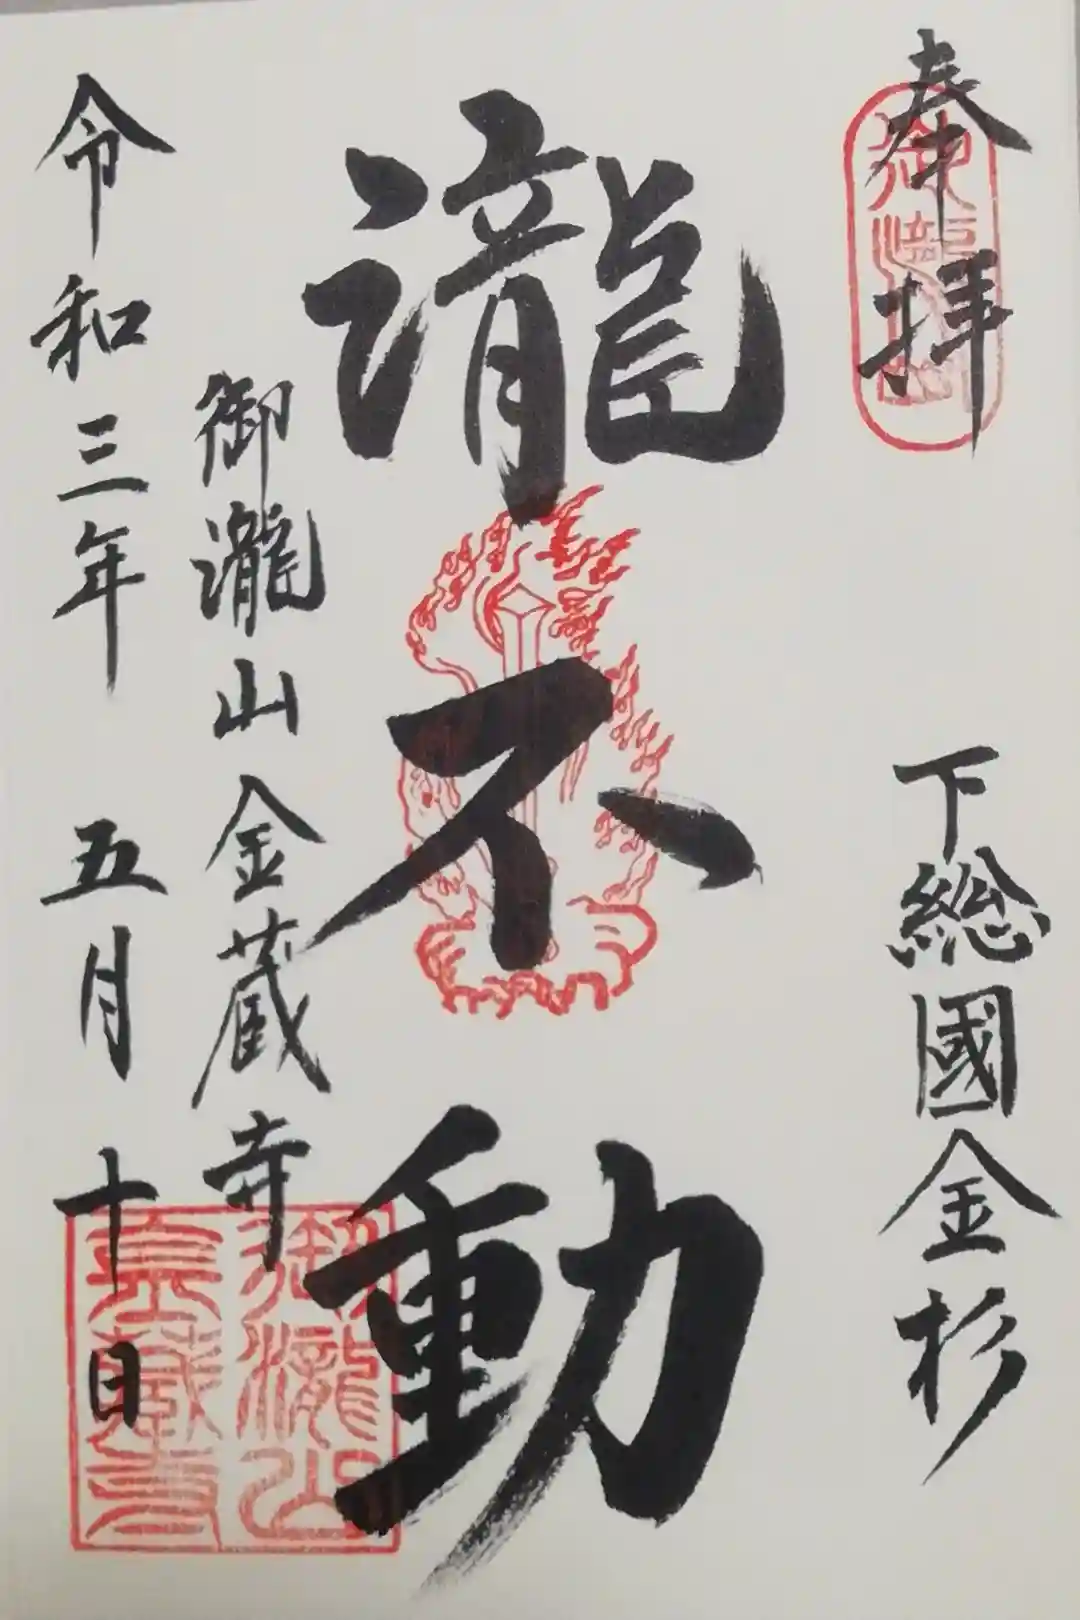 奉拝
下総國金杉
瀧不動
御瀧山金蔵寺
令和三年 五月 十日
御瀧山
金蔵寺